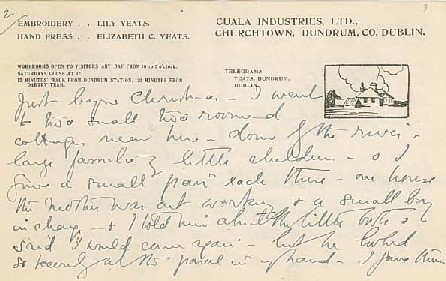 2
EMBROIDERY . . LILY YEATS.
HAND PRESS . . ELIZABETH C. YEATS.
CUALA INDUSTRIES, LTD.,
CHURCHTOWN, DUNDRUM, CO. DUBLIN.
WORKROOMS OPEN TO VISITORS ANY DAY FROM 10 to 5 o'clock.
SATURDAYS CLOSE AT 1.
MINUTES' WALK FROM DUNDRUM STATION, 20 MINUTES FROM
DARTRY TRAM.
TELEGRAMS
YEATS, DUNDRUM,
DUBLIN.
Just before Christmas - I went
to two small two roomed
cottages near here - down by the river -
large families of little children - & I
gave a small each there - one house
the mother was out working & a small boy
in charge - & I told him about the little &
said I would come again - but he looked
so at the parcel in my hand - I gave them